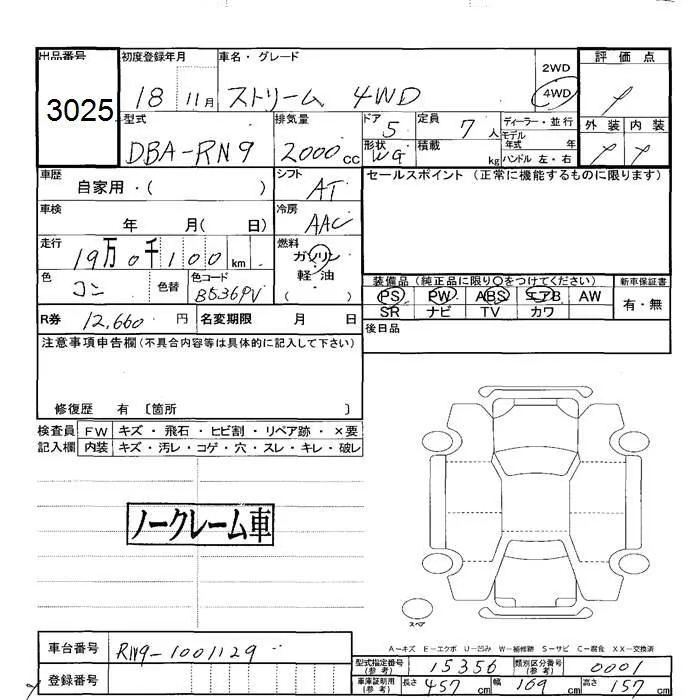 出品番号 初度登録年月 車名・グレード 2WD 評価点
3025 18 11月 ストリーム 4WD 4WD
型式 排気量 ドア 5 定員 7人 ディーラー・並行 外装 内装
DBA-RN9 2000cc 形状 WG 積載 kg モデル年式 年
ハンドル 左・右
車歴 自家用・( ) シフト AT セールスポイント (正常に機能するものに限ります)
車検 年 月( 日) 冷房 AAC
走行 19万0千100km 燃料 ガソリン
軽・油
( )
色 コン 色替 色コード B536PV
装備品(純正品に限り○をつけてください) 新車保証書
PS PW ABS エアB AW 有・無
SR ナビ TV カワ
R券 12,660円 名変期限 月 日 後日品
注意事項申告欄(不具合内容等は具体的に記入して下さい)
修復歴 有 〔箇所 〕
検査員 FW キズ・飛石・ヒビ割・リペア跡・×要
記入欄 内装 キズ・汚レ・コゲ・穴・スレ・キレ・破レ
ノークレーム車
スペア
A-キズ E-エクボ U-凹み W-補修跡 S-サビ C-腐食 XX-交換済
車台番号 RN9-1001129
登録番号
型式指定番号(参考) 15356 類別区分番号(参考) 0001
車庫証明用(参考) 長さ 457cm 幅 169cm 高さ 157cm